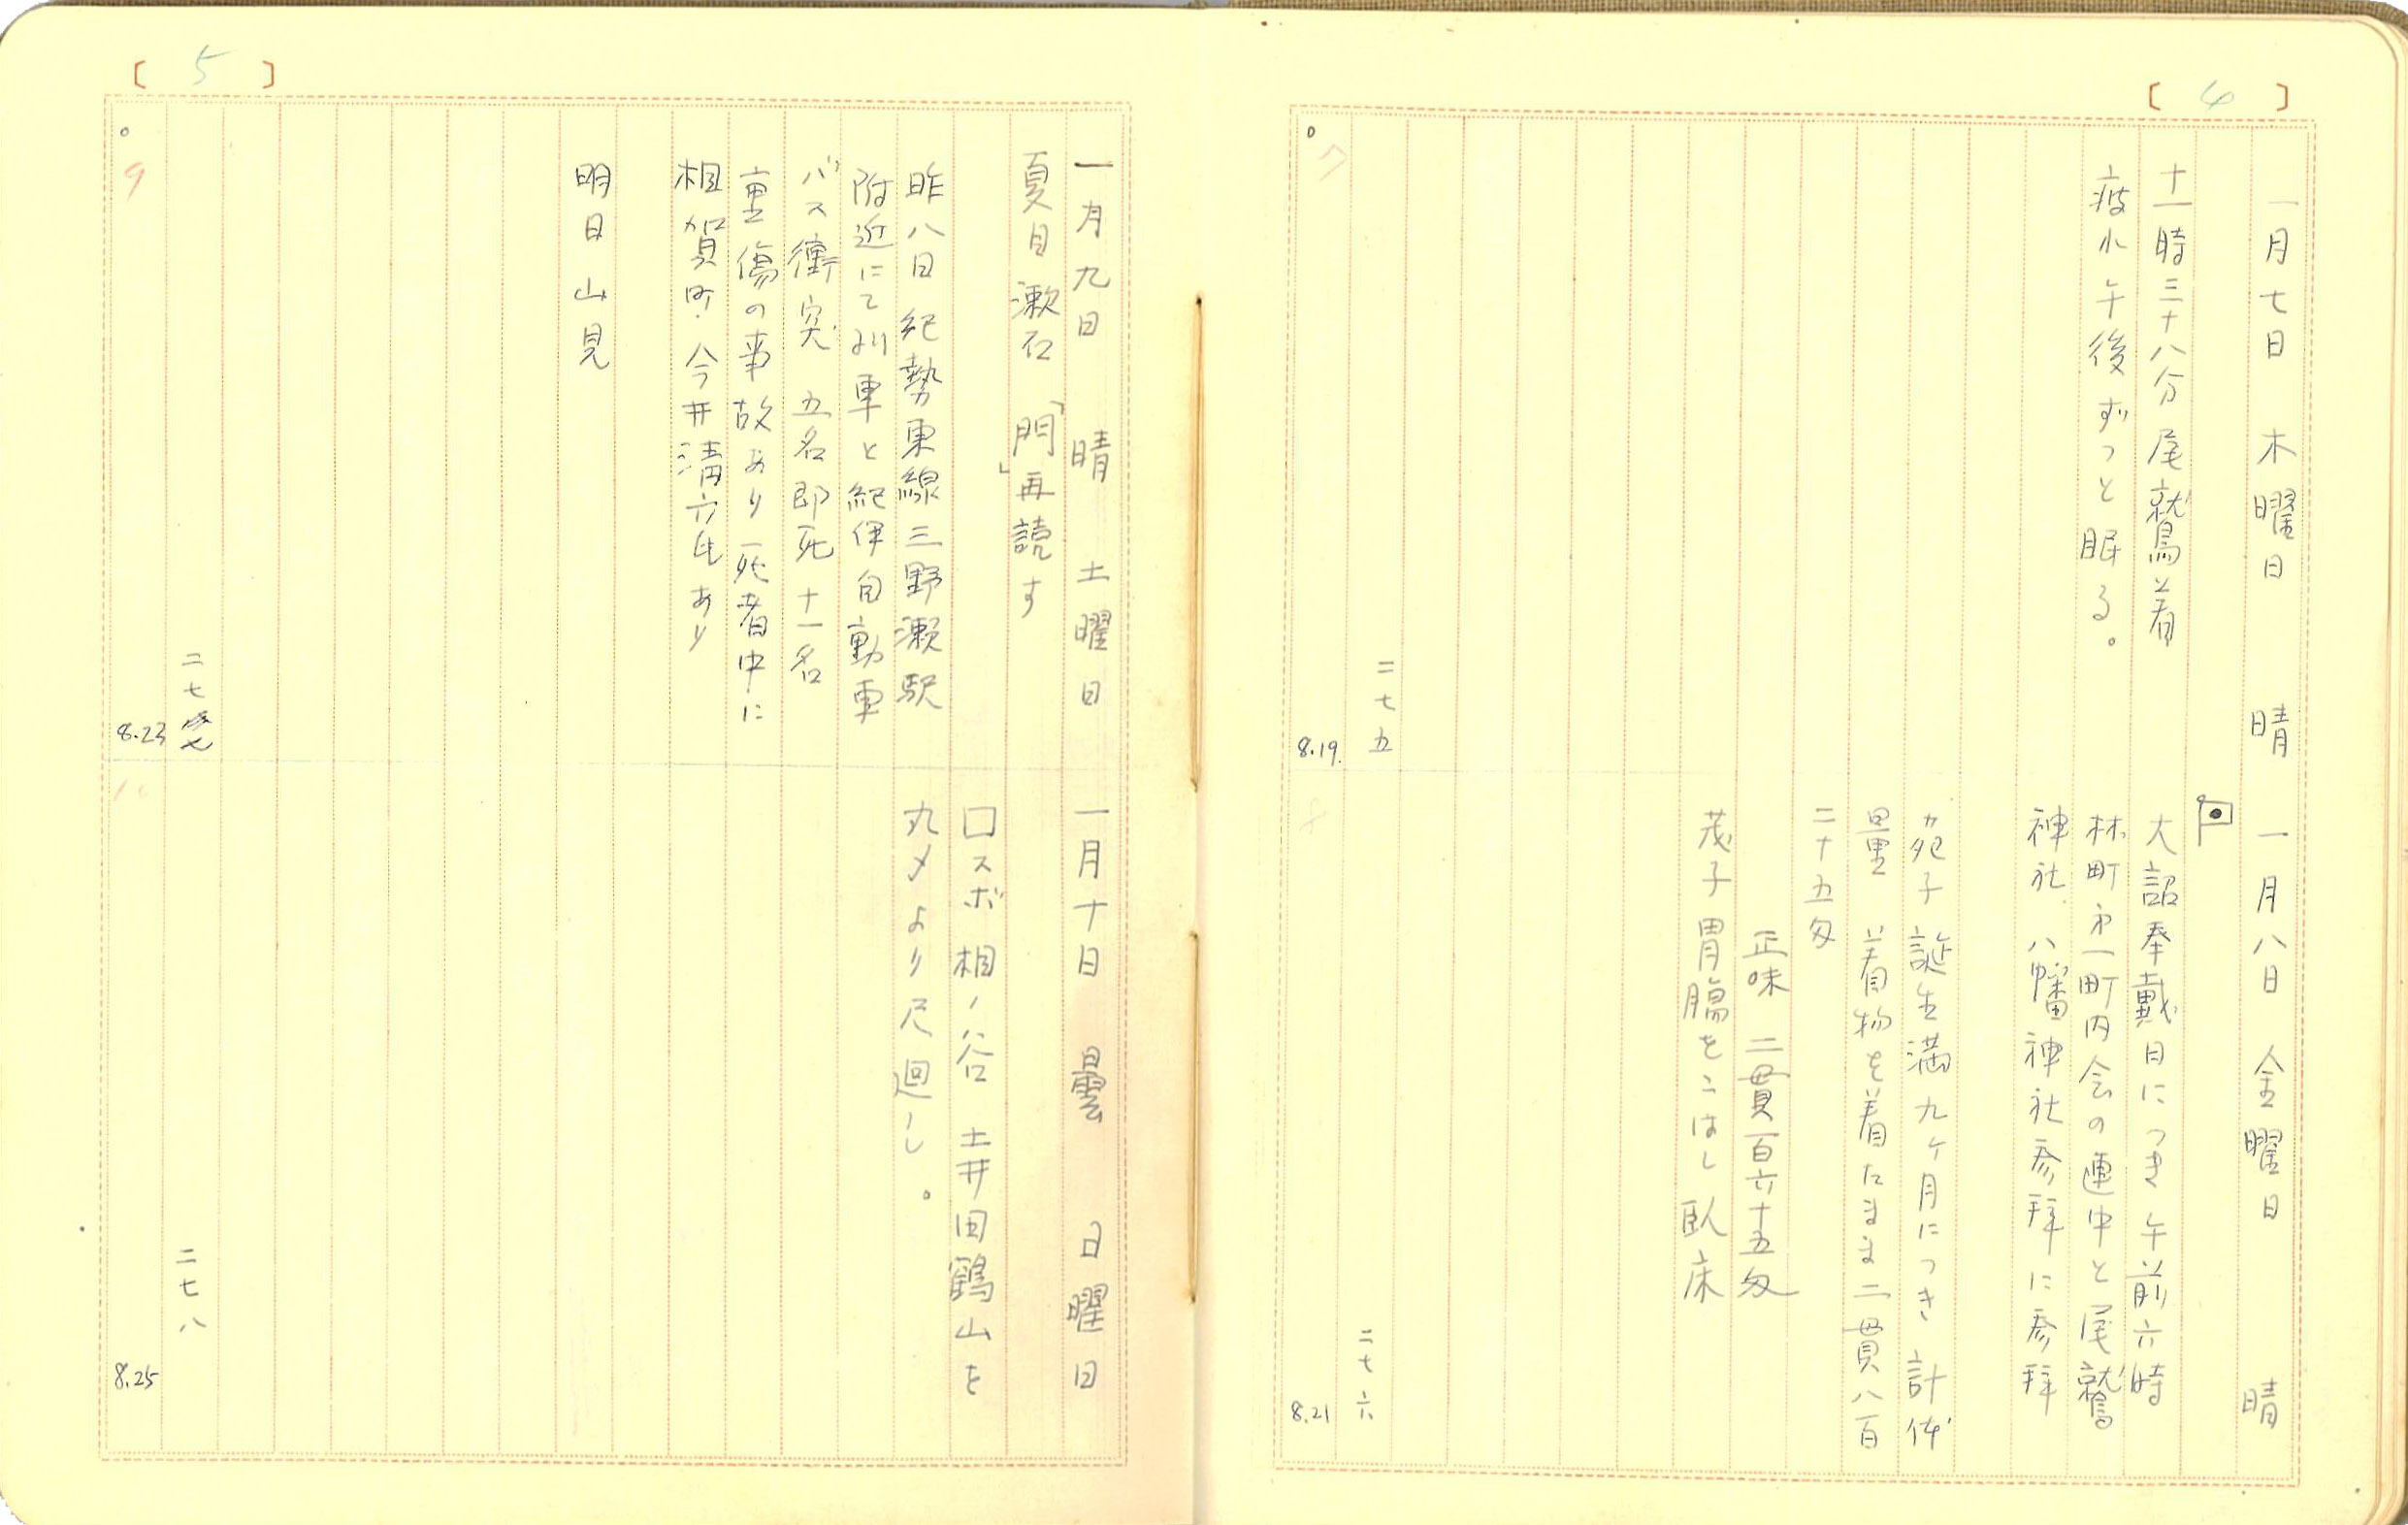 [ 4 ]
一月七日 木曜日 晴
十一時三十八分尾鷲着
疲れ午後ずっと眠る。
二七五
7
8.19.
一月八日 金曜日 晴
大詔奉戴日につき午前六時
林町第一町内会の連中と尾鷲
神社、八幡神社参拝に参拝
苑子誕生満九ヶ月につき計体
量 着物を着たまま二貫八百
二十五匁
正味 二貫百六十五匁
茂子胃腸をこはし臥床
二七六
8
8.21
[ 5 ]
一月九日 晴 土曜日
夏目漱石「門」再読す
昨八日紀勢東線三野瀬駅
附近にて列車と紀伊自動車
バス衝突 五名即死十一名
重傷の事故あり死者中に
相賀町今井清六氏あり
明日山見
二七七
9
8.23
一月十日 曇 日曜日
口スボ相ノ谷 土井田鶴山を
丸〆より尺廻し。
二七八
10
8.25